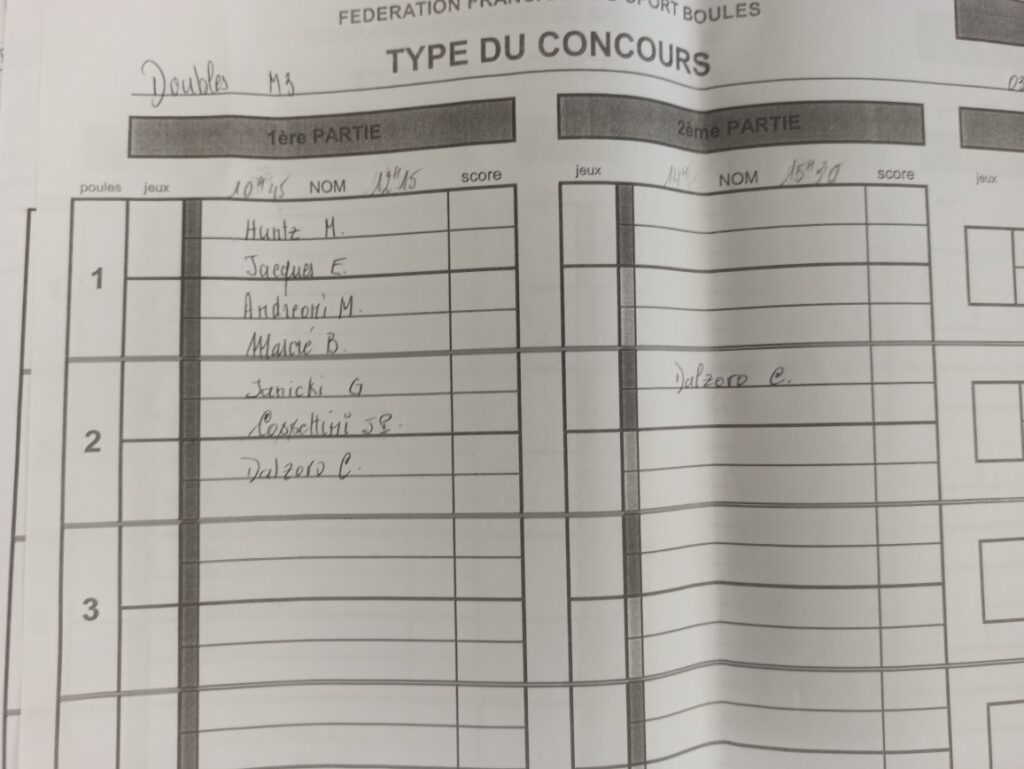 FEDERATION FRANÇAISE DU SPORT BOULES
TYPE DU CONCOURS
Doubles M3
03
1ère PARTIE
2ème PARTIE
poules jeux 10H45 NOM 12H15 score
jeux 14H NOM 15H30 score
jeux
1
Huntz M.
Jacques E.
Andreoni M.
B.
2
Janicki G
JP.
Dalzoro C.
Dalzoro C.
3